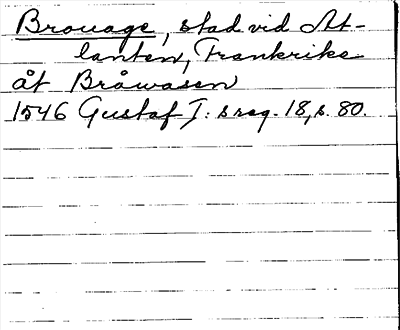 Brouage, stad vid At-
lanten, Frankrike
åt Bråwasen
1546 Gustaf I: s reg. 18, s. 80.